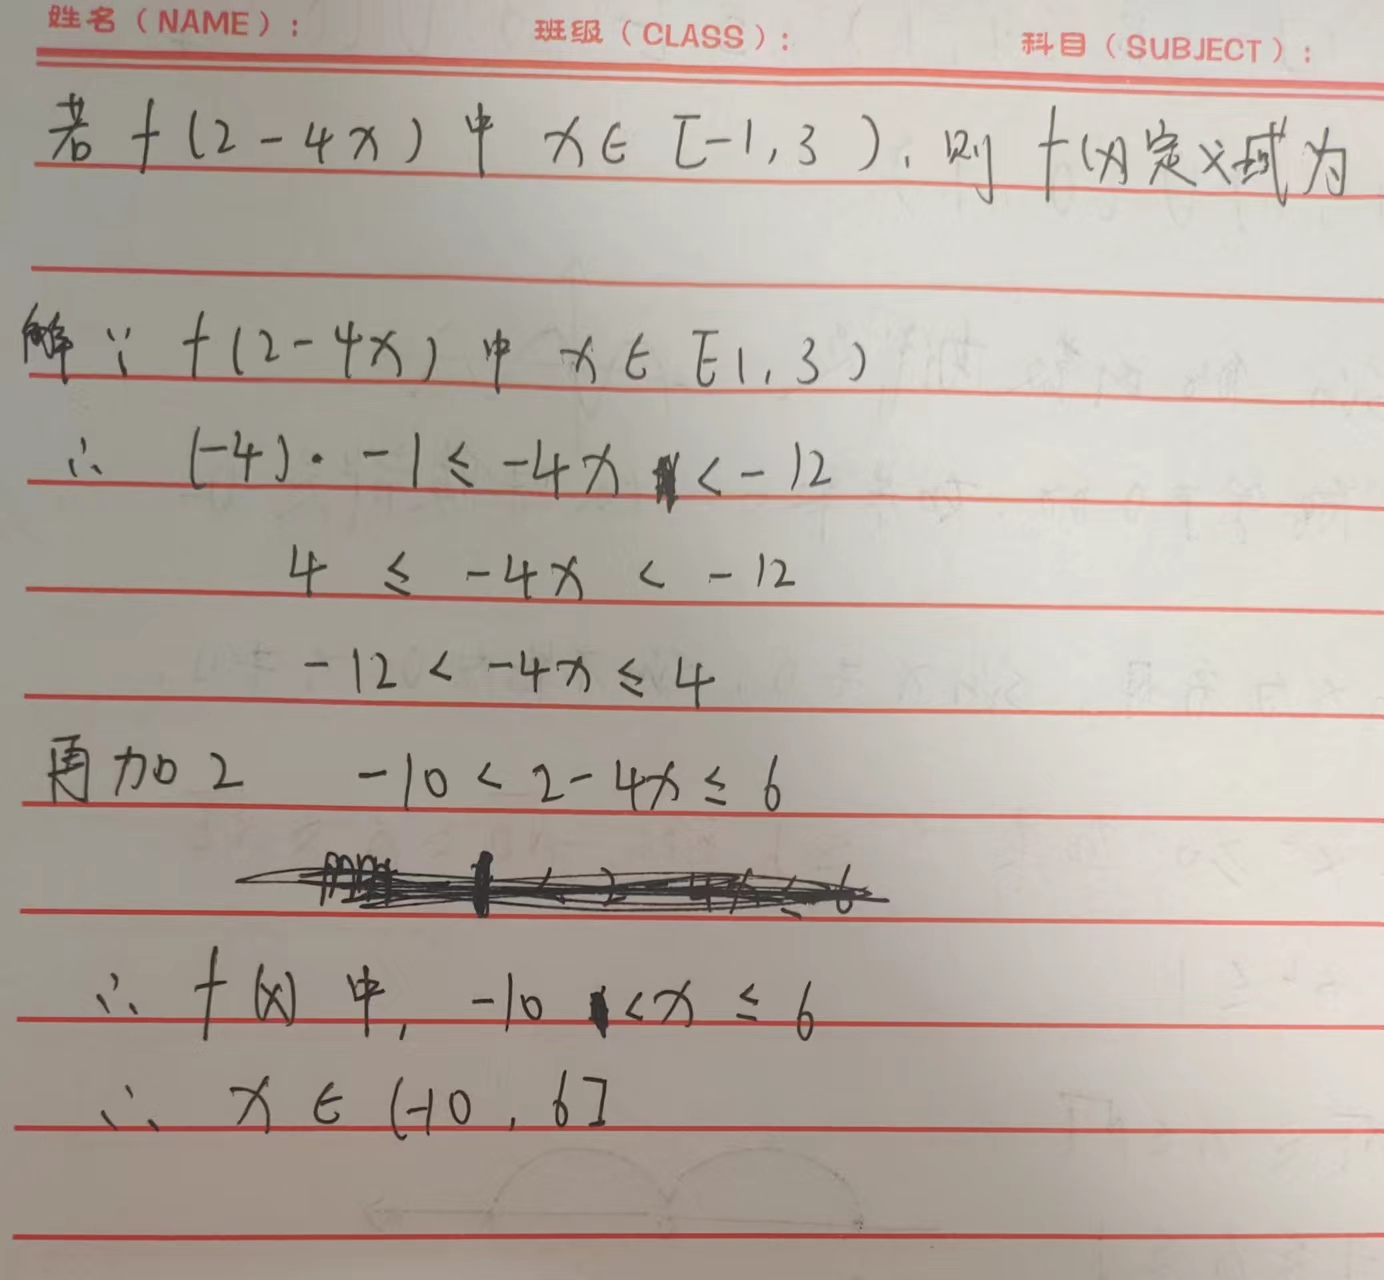 姓名（NAME）： 班级（CLASS）： 科目（SUBJECT）：
若 f(2-4x) 中 x∈[-1,3), 则 f(x)定义域为
解∵ f(2-4x) 中 x∈[-1,3)
∴ (-4)·-1≤-4x<-12
4 ≤ -4x < -12
-12<-4x≤4
再加2 -10<2-4x≤6
∴ f(x)中, -10<x≤6
∴ x∈(-10,6]